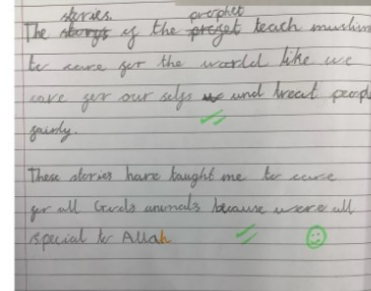 stories. prophet
The storys of the proget teach muslim
to care for the world like we
care for our selfs and treat peopl
fairly.
These stories have taught me to care
for all Gods animals because were all
special to Allah